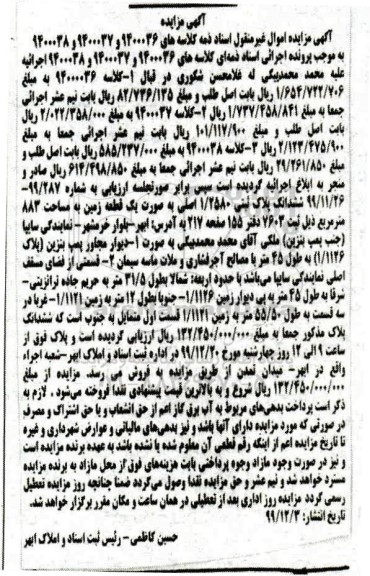 آگهی مزایده
آگهی مزایده اموال غیرمنقول اسناد ذمه کلاسه های ۹۴۰۰۰۳۶ و ۹۴۰۰۰۳۷ و ۹۴۰۰۰۳۸
به موجب پرونده اجرائی اسناد ذمه‌ای کلاسه های ۹۴۰۰۰۳۶ و ۹۴۰۰۰۳۷ و ۹۴۰۰۰۳۸ اجرائیه
علیه محمد محمدبیگی له غلامحسن شکوری در قبال ۱-کلاسه ۹۴۰۰۰۰۳۶ به مبلغ
۱/۶۵۴/۷۲۲/۷۰۶ ریال بابت اصل طلب و مبلغ ۸۲/۷۳۶/۱۳۵ ریال بابت نیم عشر اجرائی
جمعا به مبلغ ۱/۷۳۷/۴۵۸/۸۴۱ ریال ۲-کلاسه ۹۴۰۰۰۳۷ به مبلغ ۲/۰۲۲/۳۵۸/۰۰۰ ریال
بابت اصل طلب و مبلغ ۱۰۱/۱۱۷/۹۰۰ ریال بابت نیم عشر اجرائی جمعا به مبلغ
۲/۱۲۳/۴۷۵/۹۰۰ ریال ۳-کلاسه ۹۴۰۰۰۳۸ به مبلغ ۵۸۵/۲۳۷/۰۰۰ ریال بابت اصل طلب و
مبلغ ۲۹/۲۶۱/۸۵۰ ریال بابت نیم عشر اجرائی جمعا به مبلغ ۶۱۴/۴۹۸/۸۵۰ ریال صادر و
منجر به ابلاغ اجرائیه گردیده است سپس برابر صورتجلسه ارزیابی به شماره ۹۹/۲۸۷-
۹۹/۱۱/۲۶ ششدانگ پلاک ثبتی ۱/۲۵۸۰ اصلی به صورت یک قطعه زمین به مساحت ۸۸۳
مترمربع ذیل ثبت ۷۶۰۳ دفتر ۱۵۵ صفحه ۲۱۷ به آدرس: ابهر-بلوار خرمشهر- نمایندگی سایپا
(جنب پمپ بنزین) ملکی آقای محمد محمدبیگی به صورت ۱-دیوار مجاور پمپ بنزین (پلاک
۱/۱۱۲۶) به طول ۴۵ متر با مصالح آجرفشاری و ملات ماسه سیمان ۲- قسمتی از فضای مسقف
اصلی نمایندگی سایپا می‌باشد با حدود اربعه: شمالا بطول ۳۱/۵ متر به حریم جاده ترانزیتی-
شرقا به طول ۴۵ متر به پی دیوار زمین ۱/۱۱۲۶-جنوبا بطول ۱۲ متر به زمین ۱/۱۱۲۱- غربا در
سه قسمت به طول ۵۵/۵۰ متر به زمین ۱/۱۱۲۱ قسمت اول متمایل به جنوب است که ششدانگ
پلاک مذکور جمعا به مبلغ ۱۳۲/۴۵۰/۰۰۰/۰۰۰ ریال ارزیابی گردیده است و پلاک فوق از
ساعت ۹ الی ۱۲ روز چهارشنبه مورخ ۹۹/۱۲/۲۰ در اداره ثبت اسناد و املاک ابهر-شعبه اجراء
واقع در ابهر- میدان تمدن از طریق مزایده به فروش می رسد. مزایده از مبلغ
۱۳۲/۴۵۰/۰۰۰/۰۰۰ ریال شروع و به بالاترین قیمت پیشنهادی نقدا فروخته می‌شود. لازم به
ذکر است پرداخت بدهی‌های مربوط به آب برق گاز اعم از حق انشعاب و یا حق اشتراک و مصرف
در صورتی که مورد مزایده دارای آنها باشد و نیز بدهی‌های مالیاتی و عوارض شهرداری و غیره
تا تاریخ مزایده اعم از اینکه رقم قطعی آن معلوم شده یا نشده باشد به عهده برنده مزایده است
و نیز در صورت وجود مازاد وجوه پرداختی بابت هزینه‌های فوق از محل مازاد به برنده مزایده
مسترد خواهد شد و نیم عشر و حق مزایده نقدا وصول می‌گردد ضمنا چنانچه روز مزایده تعطیل
رسمی گردد مزایده روز اداری بعد از تعطیلی در همان ساعت و مکان مقرر برگزار خواهد شد.
تاریخ انتشار: ۹۹/۱۲/۳
حسین کاظمی- رئیس ثبت اسناد و املاک ابهر